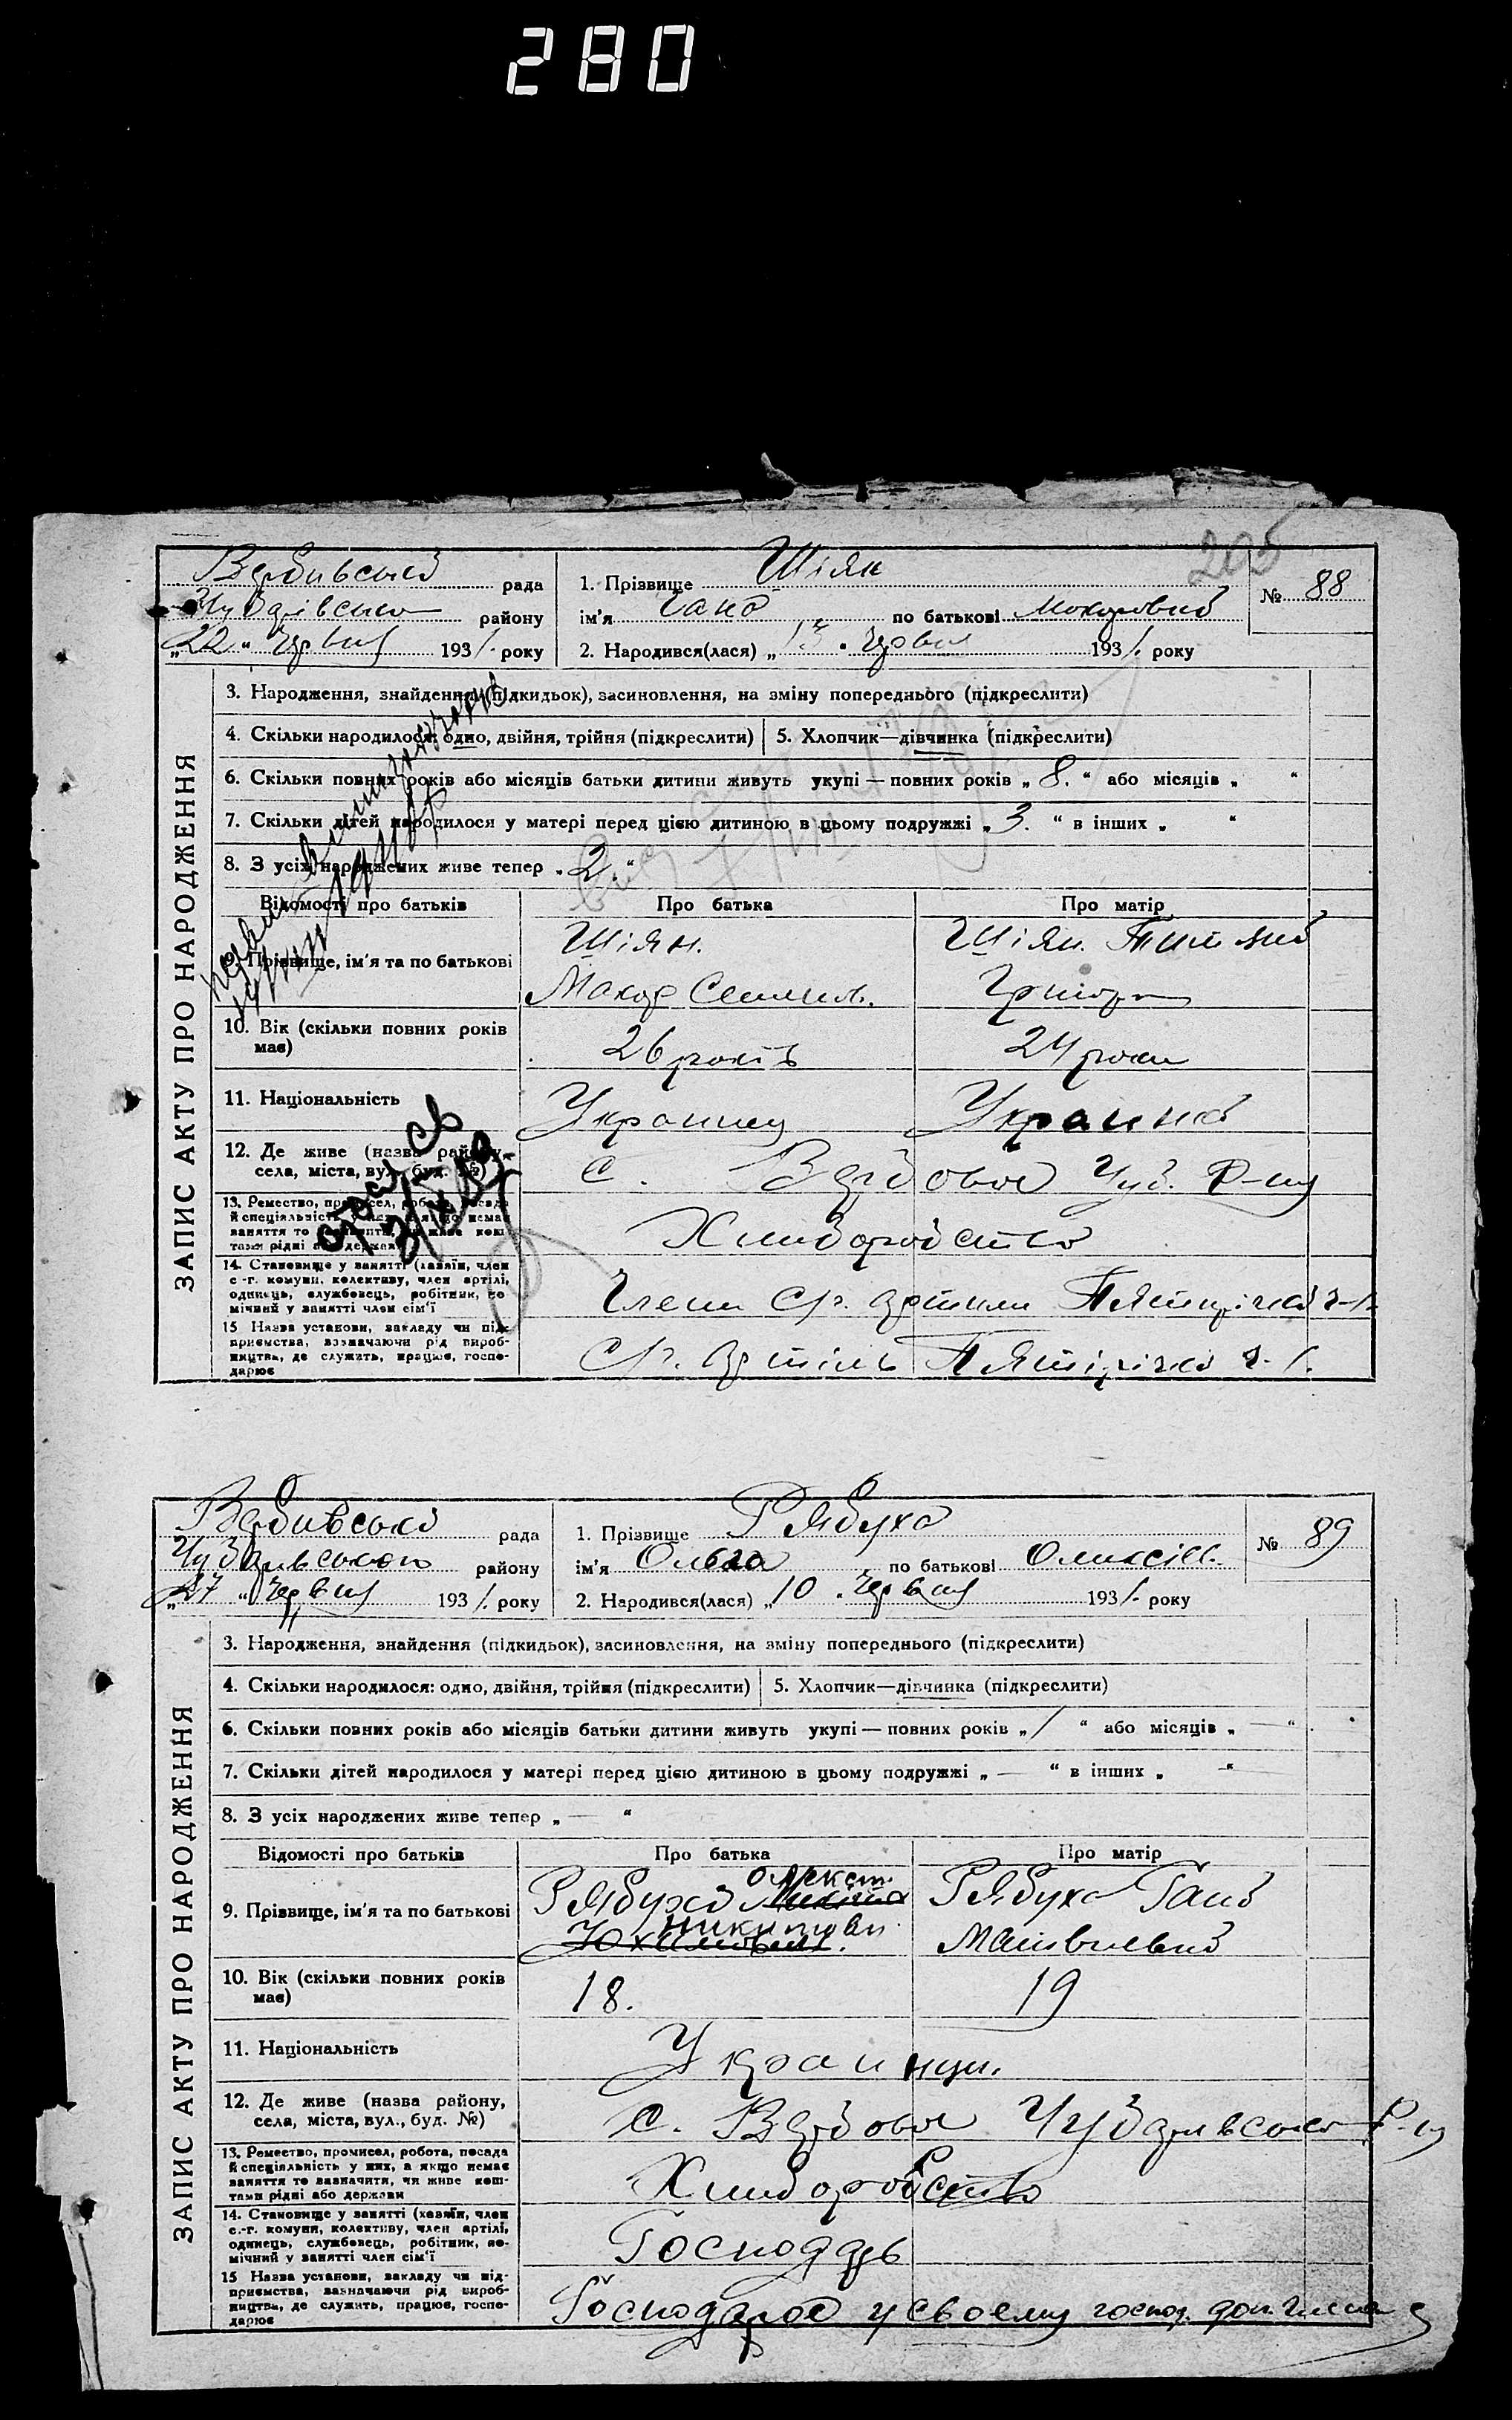 280
205
Вербивської рада
Чубарівсько району
„22“ Червня 1931. року
1. Прізвище Шіян
ім'я Гана по батькові Макаровна
2. Народився(лася) „13. Червня 1931. року
№ 88
ЗАПИС АКТУ ПРО НАРОДЖЕННЯ
3. Народження, знайдення (підкидьок), засиновлення, на зміну попереднього (підкреслити)
4. Скільки народилося: одно, двійня, трійня (підкреслити) 5. Хлопчик—дівчинка (підкреслити)
6. Скільки повних років або місяців батьки дитини живуть укупі — повних років „ 8. “ або місяців „ “
7. Скільки дітей народилося у матері перед цією дитиною в цьому подружжі „ 3. “ в інших „ “
8. З усіх народжених живе тепер „ 2. “
Відомості про батьків Про батька Про матір
9. Прізвище, ім'я та по батькові
Шіян. Шіян.
Макар Григор
10. Вік (скільки повних років має) 26 років 24 роки
11. Національність Украинец Украинка
12. Де живе (назва району, села, міста, вул., буд. №) с. Вербова Чуб. Р-ну
13. Ремество, промисел, робота, посада
й спеціяльність у них, а якщо немає
заняття то зазначити, чи живе кош-
тами рідні або держави
Хлиборобство
14. Становище у занятті (хазяїн, член
с.-г. комуни, колективу, член артілі,
одинець, службовець, робітник, по-
мічний у занятті член сім'ї
Члени Ср. артили Пятирічка ч-1.
15 Назва установи, закладу чи під-
приємства, зазначаючи рід вироб-
ництва, де служить, працює, госпо-
дарює
Ср. артіль Пятірічка ч. 1.
Вербивської рада
Чубарівського району
„27“ Червня 1931. року
1. Прізвище Рябуха
ім'я Ольга по батькові Оликсіів.
2. Народився(лася) „10. Червня 1931. року
№ 89
ЗАПИС АКТУ ПРО НАРОДЖЕННЯ
3. Народження, знайдення (підкидьок), засиновлення, на зміну попереднього (підкреслити)
4. Скільки народилося: одно, двійня, трійня (підкреслити) 5. Хлопчик—дівчинка (підкреслити)
6. Скільки повних років або місяців батьки дитини живуть укупі — повних років „ 1 “ або місяців „ — “
7. Скільки дітей народилося у матері перед цією дитиною в цьому подружжі „ — “ в інших „ — “
8. З усіх народжених живе тепер „ — “
Відомості про батьків Про батька Про матір
9. Прізвище, ім'я та по батькові
Рябуха Рябуха Гана
Никитови Матвиевна
10. Вік (скільки повних років має) 18. 19
11. Національність Украинци.
12. Де живе (назва району, села, міста, вул., буд. №) с. Вербова Чубарівсько Р-ну
13. Ремество, промисел, робота, посада
й спеціяльність у них, а якщо немає
заняття то зазначити, чи живе кош-
тами рідні або держави
Хлиборобство
14. Становище у занятті (хазяїн, член
с.-г. комуни, колективу, член артілі,
одинець, службовець, робітник, по-
мічний у занятті член сім'ї
Господарь
15 Назва установи, закладу чи під-
приємства, зазначаючи рід вироб-
ництва, де служить, працює, госпо-
дарює
Господарює у своему госпо.